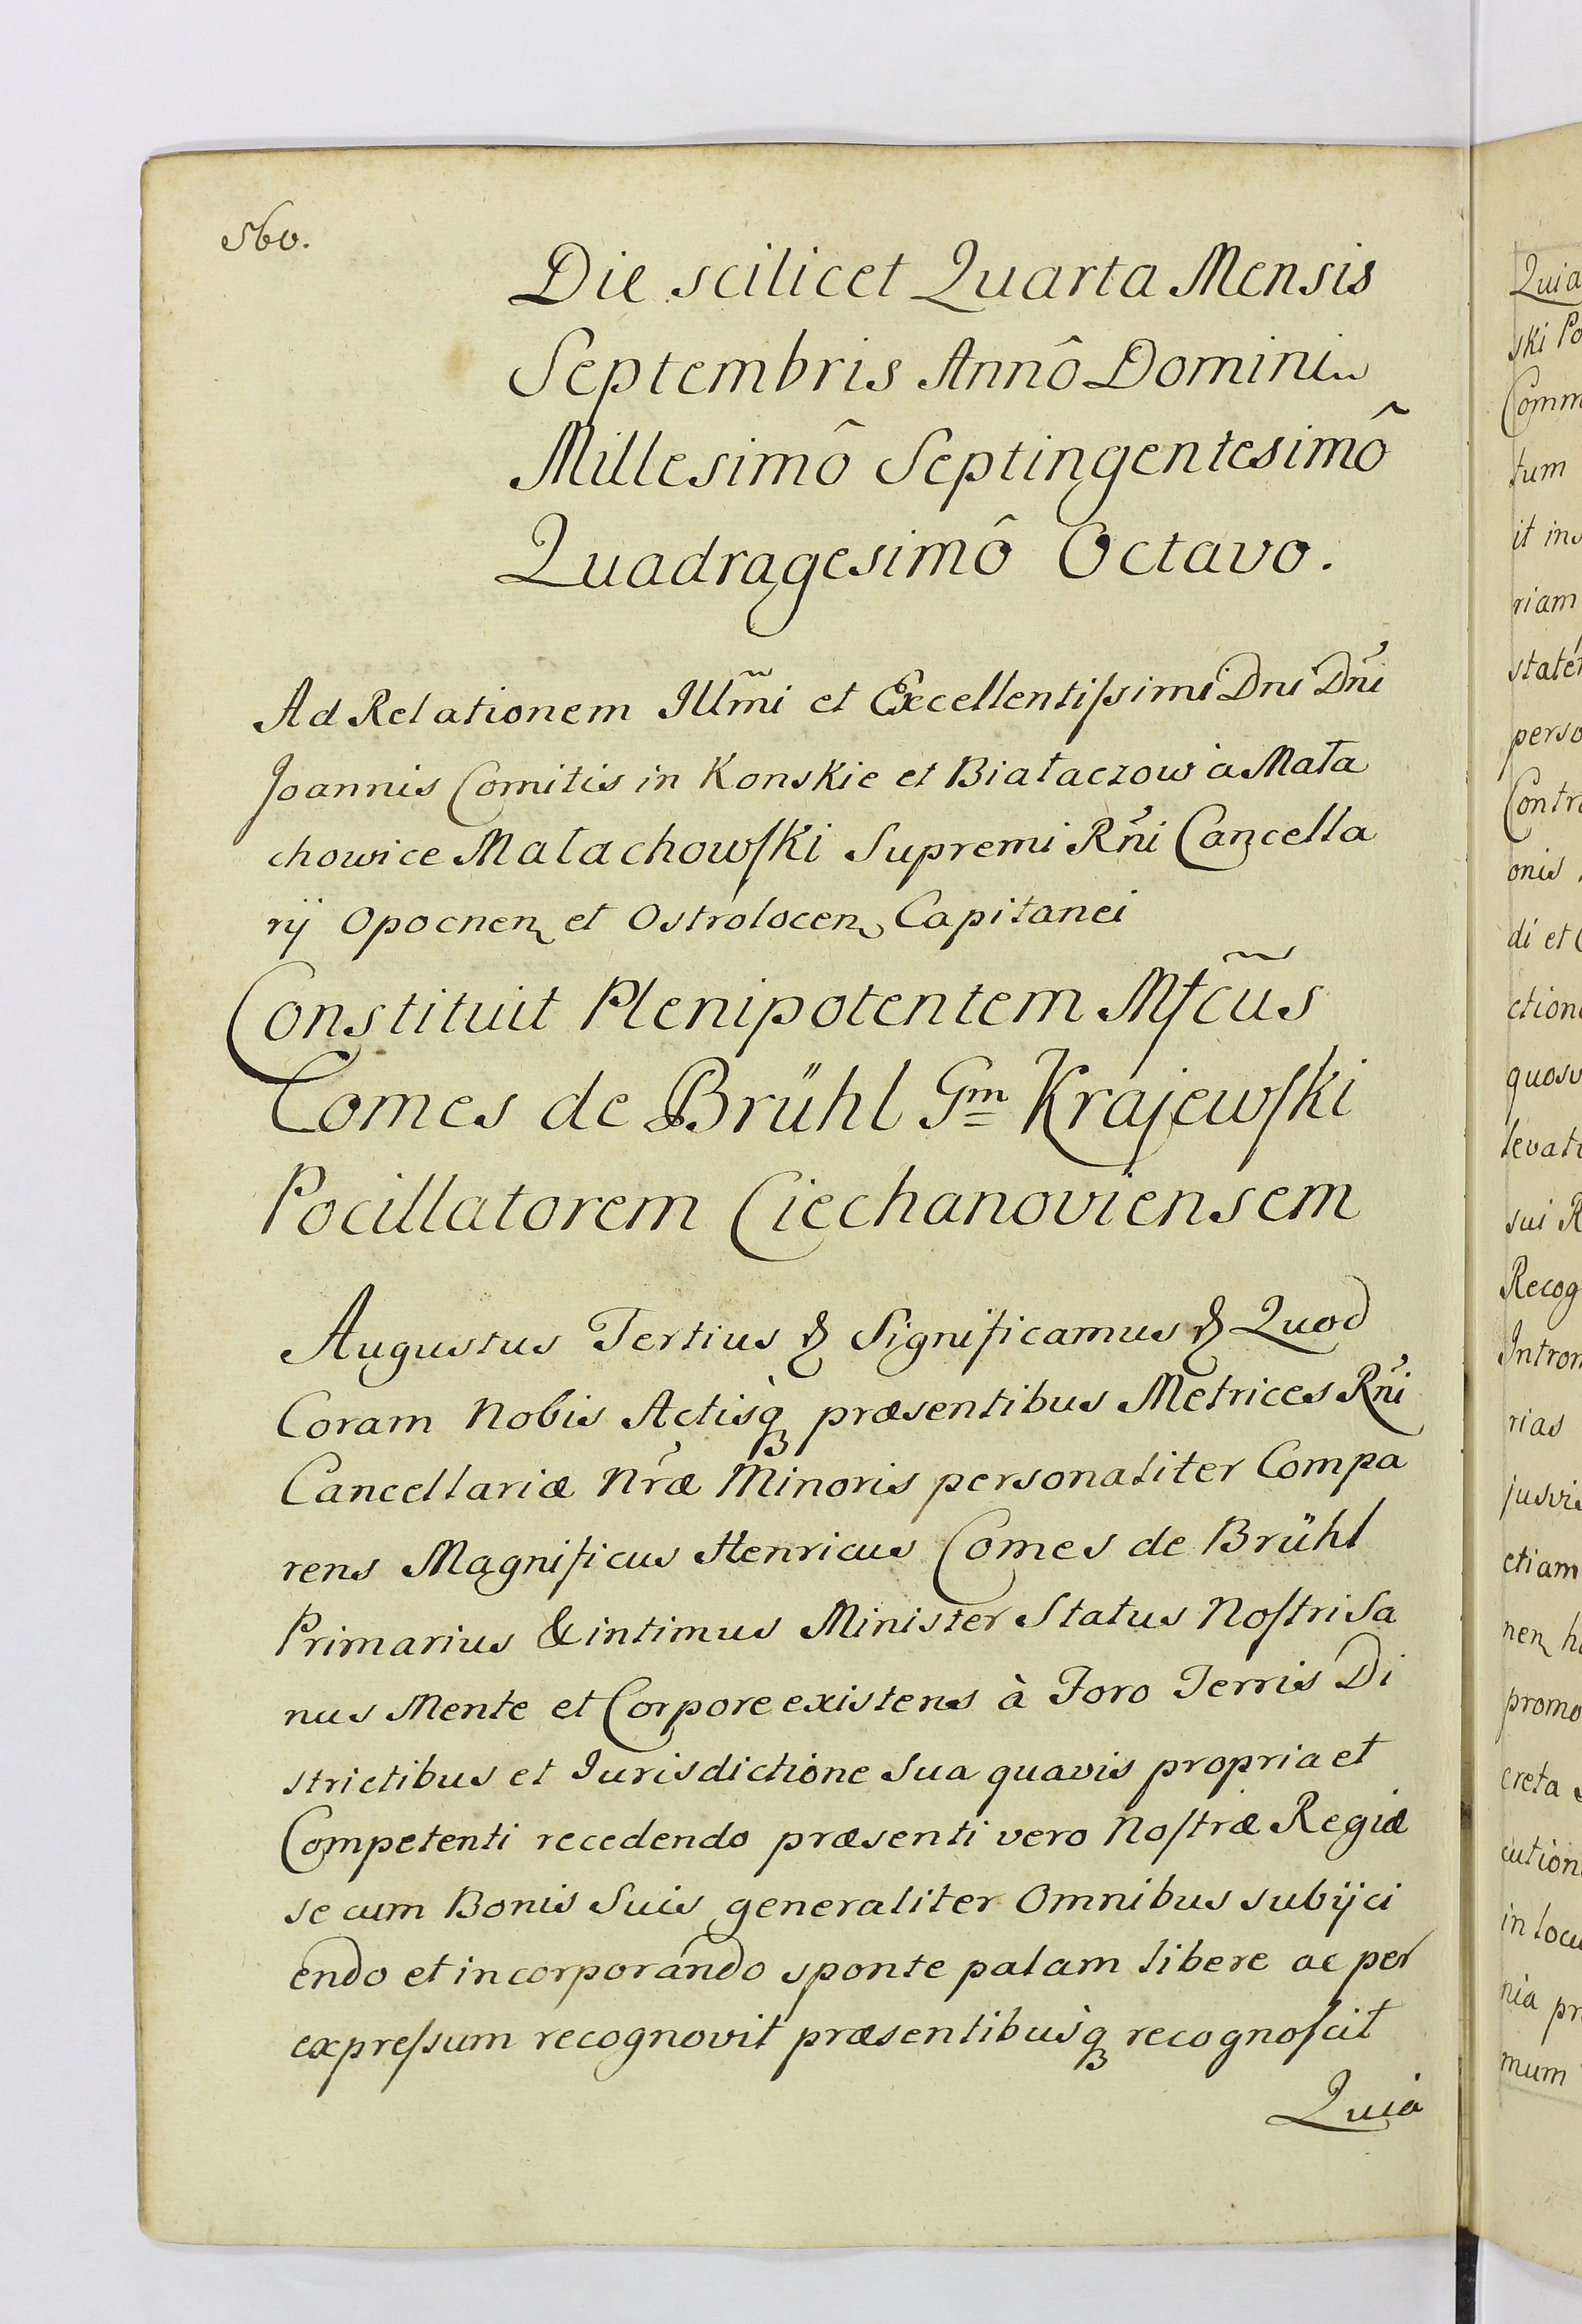 560.
Die scilicet Quarta Mensis
Septembris Annô Domini
Millesimô Septingentesimô
Quadragesimô Octavo.
Ad Relationem Illm̃i et Excellentiſsimi Dni Dñi
Joannis Comitis in Konskie et Białaczow à Mała
chowice Małachowſki Supremi Rñi Cancella
rij Opocnen et Ostrolocen Capitanei
Constituit Plenipotentem Mfc̃us
Comes de Brühl Gm Krajewſki
Pocillatorem Ciechanoviensem
Augustus Tertius & Significamus & Quod
Coram Nobis Actisq́ꝫ præsentibus Metrices Rñi
Cancellariæ Nr̃æ Minoris personaliter Compa
rens Magnificus Henricus Comes de Brühl
Primarius & intimus Minister Status Noſtri Sa
nus Mente et Corpore existens à Foro Terris Di
strictibus et Jurisdictione Sua quavis propria et
Competenti recedendo præsenti vero Noſtræ Regiæ
se cum Bonis Suis generaliter Omnibus subijci
endo et incorporando sponte palam libere ac per
expreſsum recognovit præsentibusq́ꝫ recognoſcit
Quia
Quia
ski Po
Comm
tum
it ins
riam
staté
perso
Contr
onis
di et C
ction
quosv
levat
sui R
Recog
Intro
rias
jusvi
etiam
nen h
promo
creta
cution
in locu
nia pr
mum